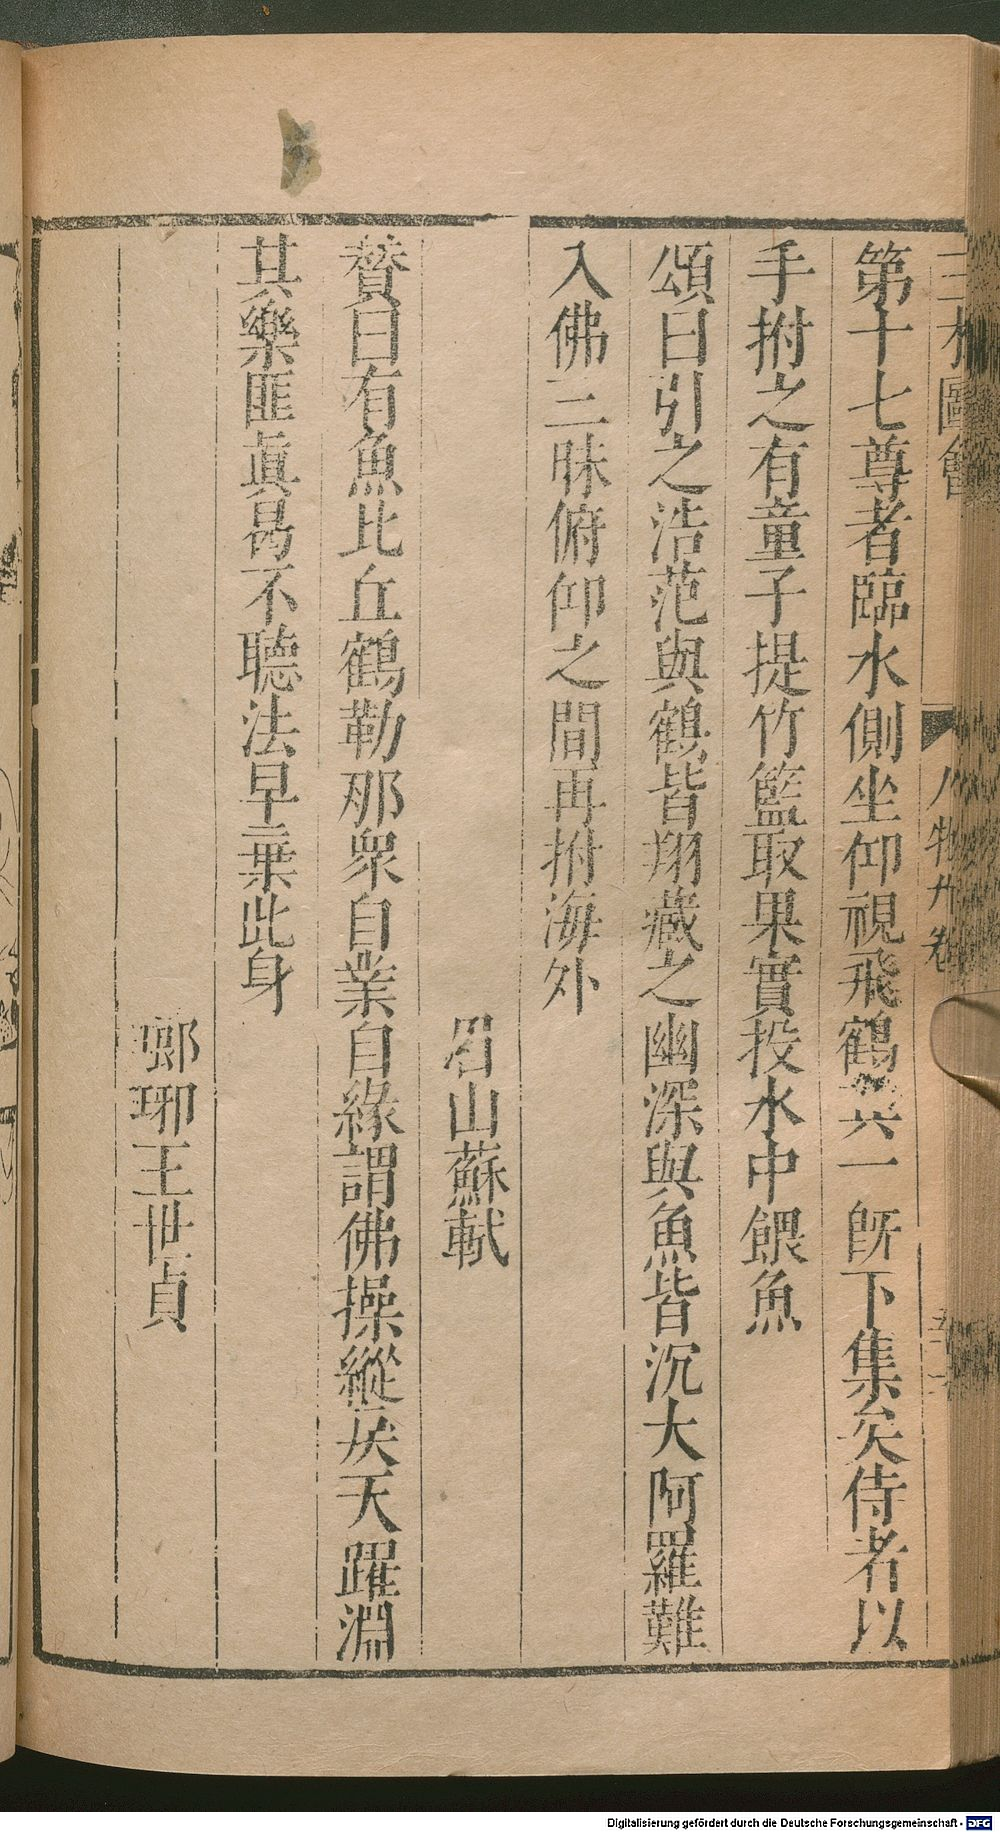 三才圖會 人物九卷
第十七尊者臨水側坐仰視飛鶴其一旣下集矣侍者以
手拊之有童子提竹籃取果實投水中餵魚
頌曰引之浩茫與鶴皆翔藏之幽深與魚皆沉大阿羅難
入佛三昧俯仰之間再拊海外
眉山蘇軾
賛曰有魚比丘鶴勒那衆自業自緣謂佛操縱戾天躍淵
其樂匪眞曷不聽法早棄此身
瑯琊王世貞
Digitalisierung gefördert durch die Deutsche Forschungsgemeinschaft - DFG